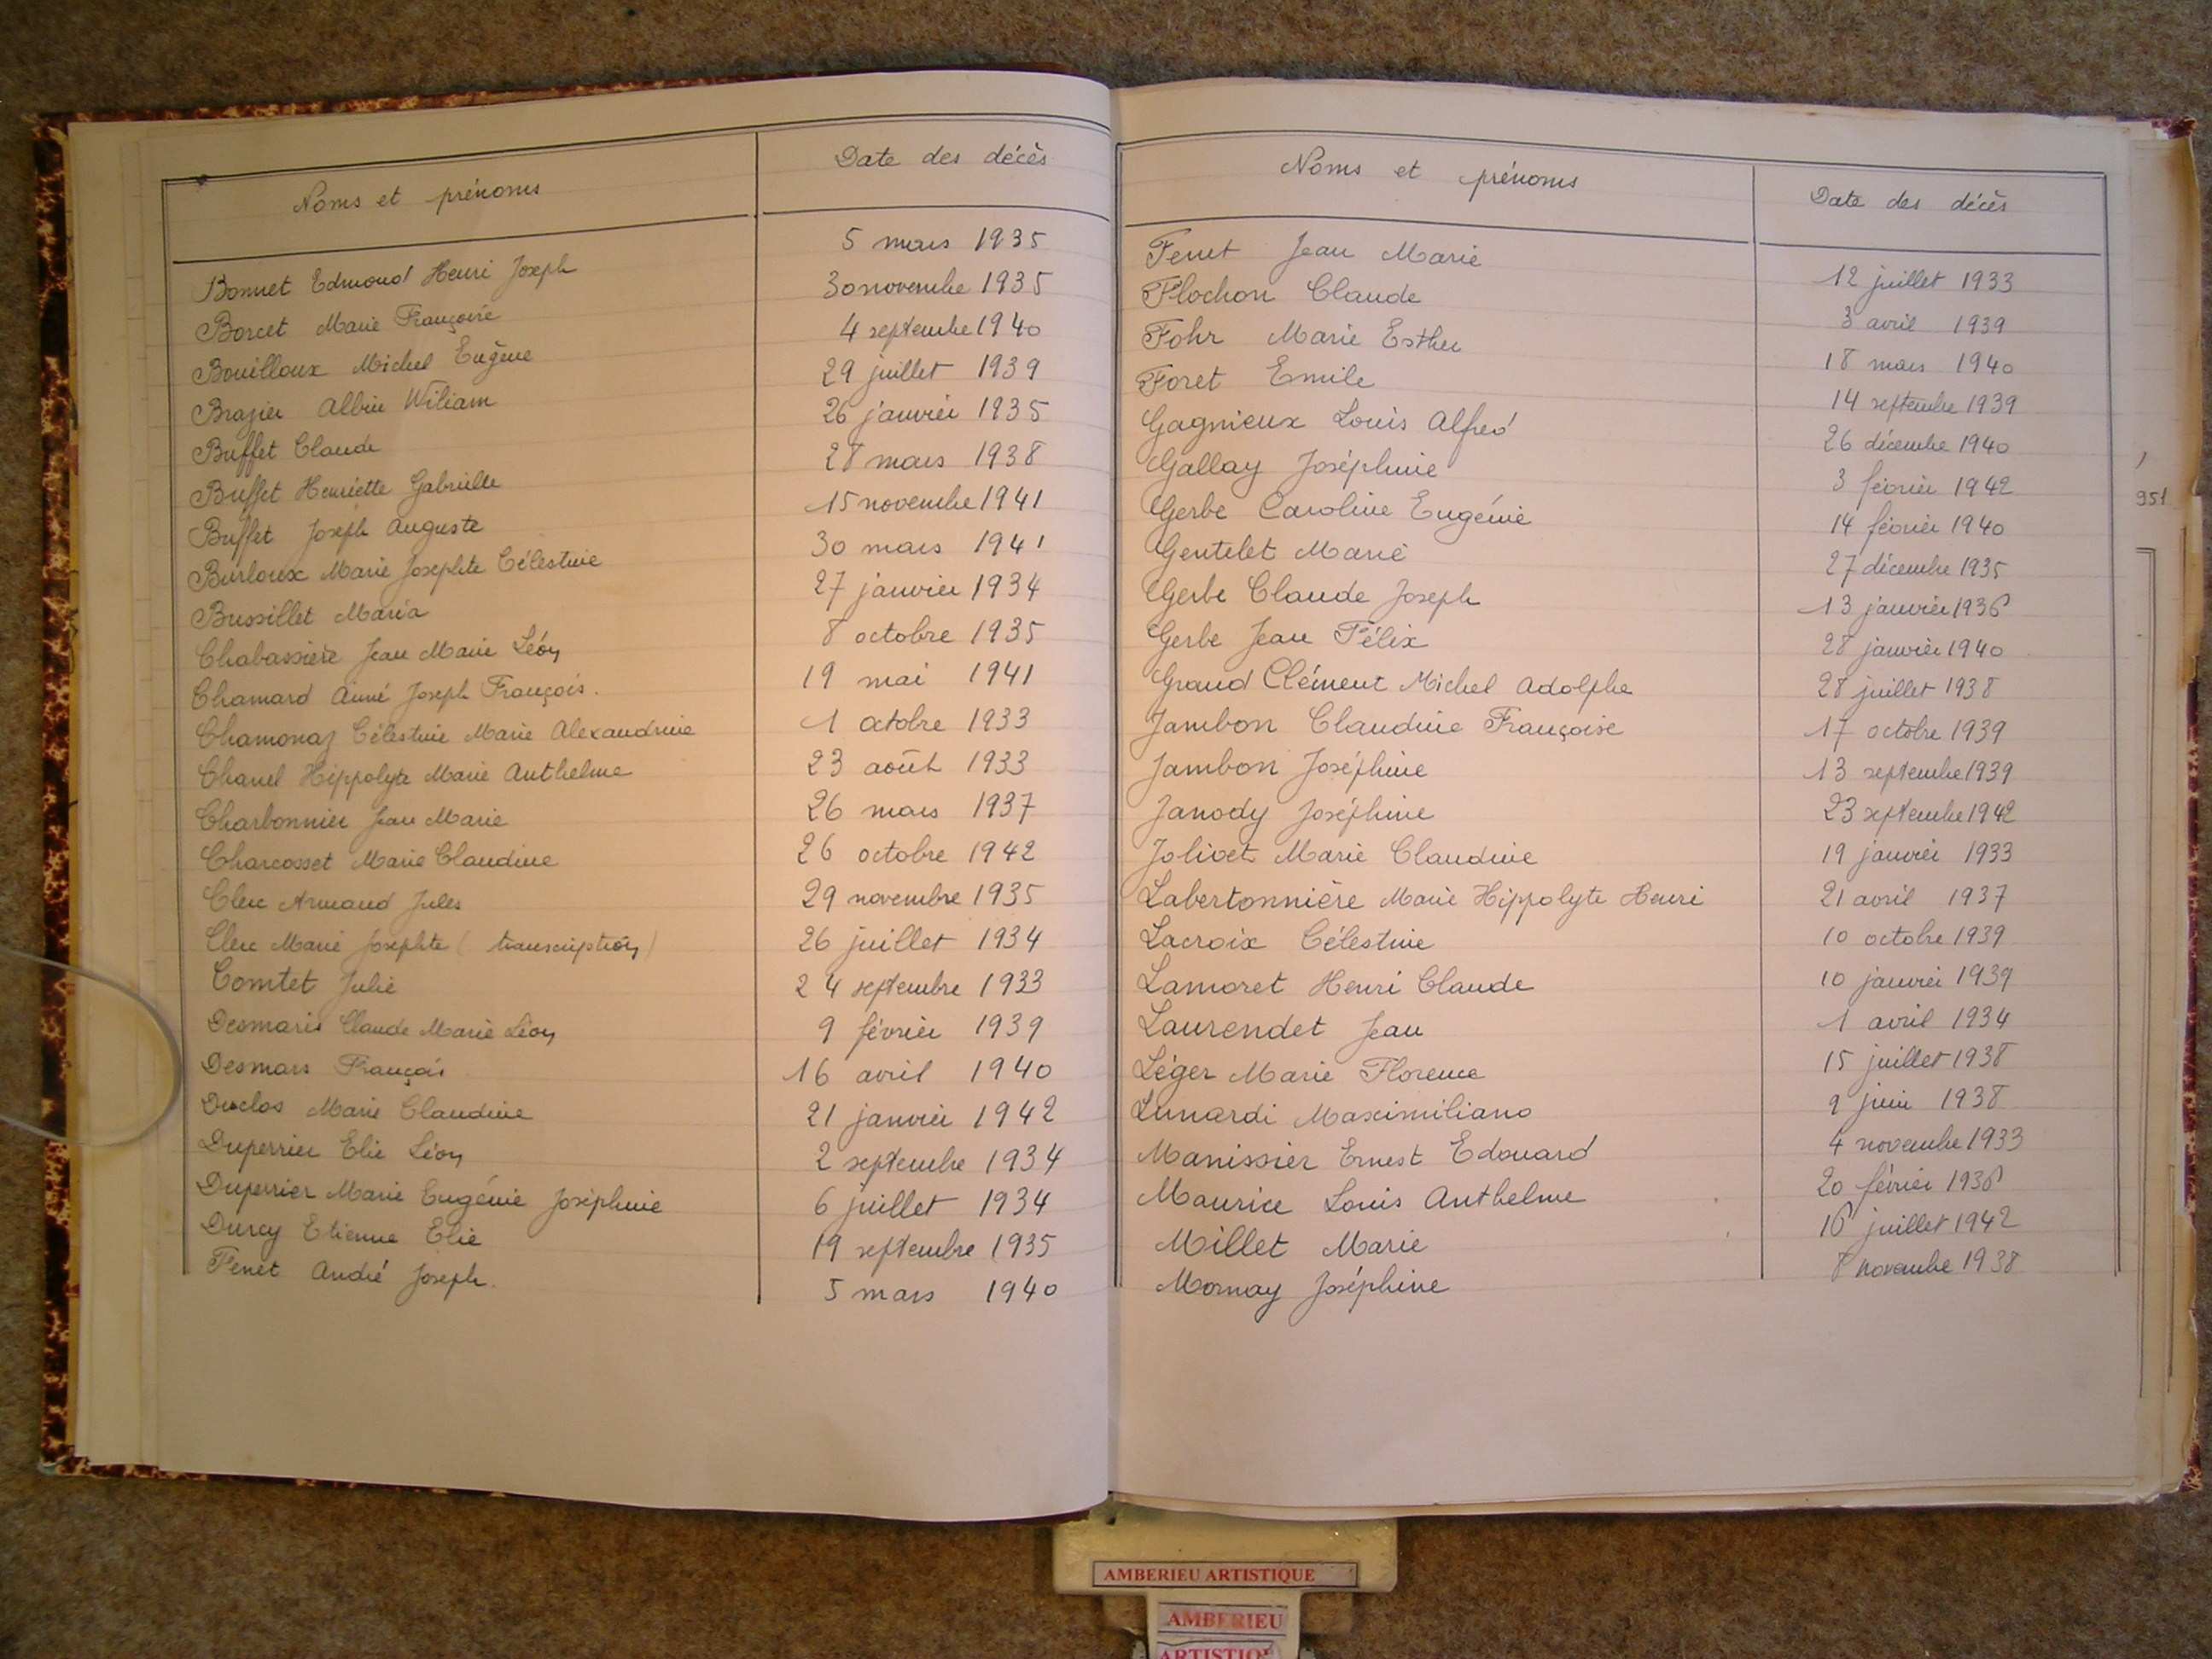 Noms et prénoms Date des décès
Bonnet Edmond Henri Joseph 5 mars 1935
Borcet Marie Françoise 30 novembre 1935
Bouilloux Michel Eugène 4 septembre 1940
Brazier Albin Wiliam 29 juillet 1939
Buffet Claude 26 janvier 1935
Buffet Henriette Gabrielle 28 mars 1938
Buffet Joseph Auguste 15 novembre 1941
Burloux Marie Josephte Célestine 30 mars 1941
Bussillet Maria 27 janvier 1934
Chabassière Jean Marie Léon 8 octobre 1935
Chamard Aimé Joseph François. 19 mai 1941
Chamonaz Célestine Marie Alexandrine 1 octobre 1933
Chanel Hippolyte Marie Anthelme 23 août 1933
Charbonnier Jean Marie 26 mars 1937
Charcosset Marie Claudine 26 octobre 1942
Clerc Armand Jules 29 novembre 1935
Clerc Marie Josephte (transcription) 26 juillet 1934
Comtet Julie 24 septembre 1933
Desmaris Claude Marie Léon 9 février 1939
Desmars François 16 avril 1940
Duclos Marie Claudine 21 janvier 1942
Duperrier Elie Léon 2 septembre 1934
Duperrier Marie Eugénie Joséphine 6 juillet 1934
Durcy Etienne Elie 19 septembre 1935
Fenet André Joseph. 5 mars 1940
Noms et prénoms Date des décès
Fenet Jean Marie 12 juillet 1933
Flochon Claude 3 avril 1939
Fohr Marie Esther 18 mars 1940
Foret Emile 14 septembre 1939
Gagnieux Louis Alfred 26 décembre 1940
Gallay Joséphine 3 février 1942
Gerbe Caroline Eugénie 14 février 1940
Gentelet Marie 27 décembre 1935
Gerbe Claude Joseph 13 janvier 1936
Gerbe Jean Félix 28 janvier 1940
Grand Clément Michel Adolphe 28 juillet 1938
Jambon Claudine Françoise 17 octobre 1939
Jambon Joséphine 13 septembre 1939
Janody Joséphine 23 septembre 1942
Jolivet Marie Claudine 19 janvier 1933
Labertonnière Marie Hippolyte Henri 21 avril 1937
Lacroix Célestine 10 octobre 1939
Lamoret Henri Claude 10 janvier 1939
Laurendet Jean 1 avril 1934
Léger Marie Florence 15 juillet 1938
Lunardi Maximiliano 9 juin 1938
Manissier Ernest Edouard 4 novembre 1933
Maurice Louis Anthelme 20 février 1936
Millet Marie 16 juillet 1942
Mornay Joséphine 8 novembre 1938
951
AMBERIEU ARTISTIQUE
AMBERIEU